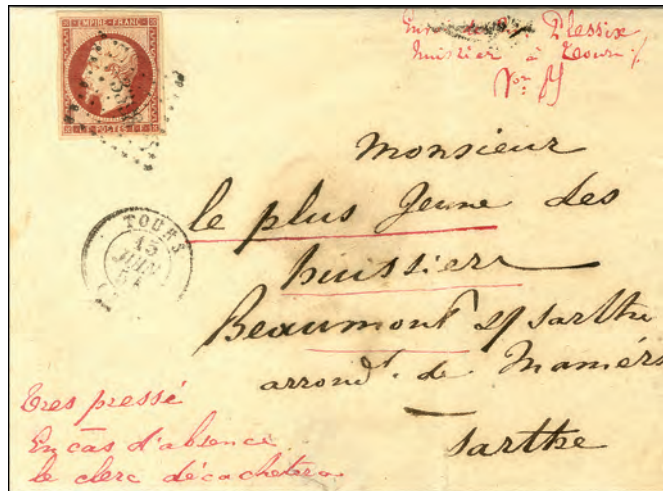 EMPIRE FRANC
POSTES
Plessix
huissier à Tours
Monsieur
le plus Jeune des
huissiers
Beaumont s/ sarthe
arrondt. de Mamers
sarthe
TOURS
15
JUIN
Tres pressé
En cas d'absence
le clerc décachetera